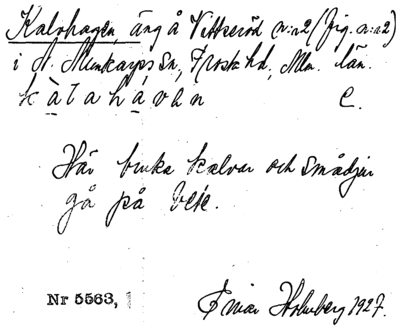 Kalvhagen, äng å Vittseröd n:a2 (fig. n:a2)
i N. Munkarps Sn, Frosta hd., Mlm. län.
kàlahávən C.
Här bruka kalvar och smådjur
gå på bete.
Nr 5563,
Einar Holmberg 1927.